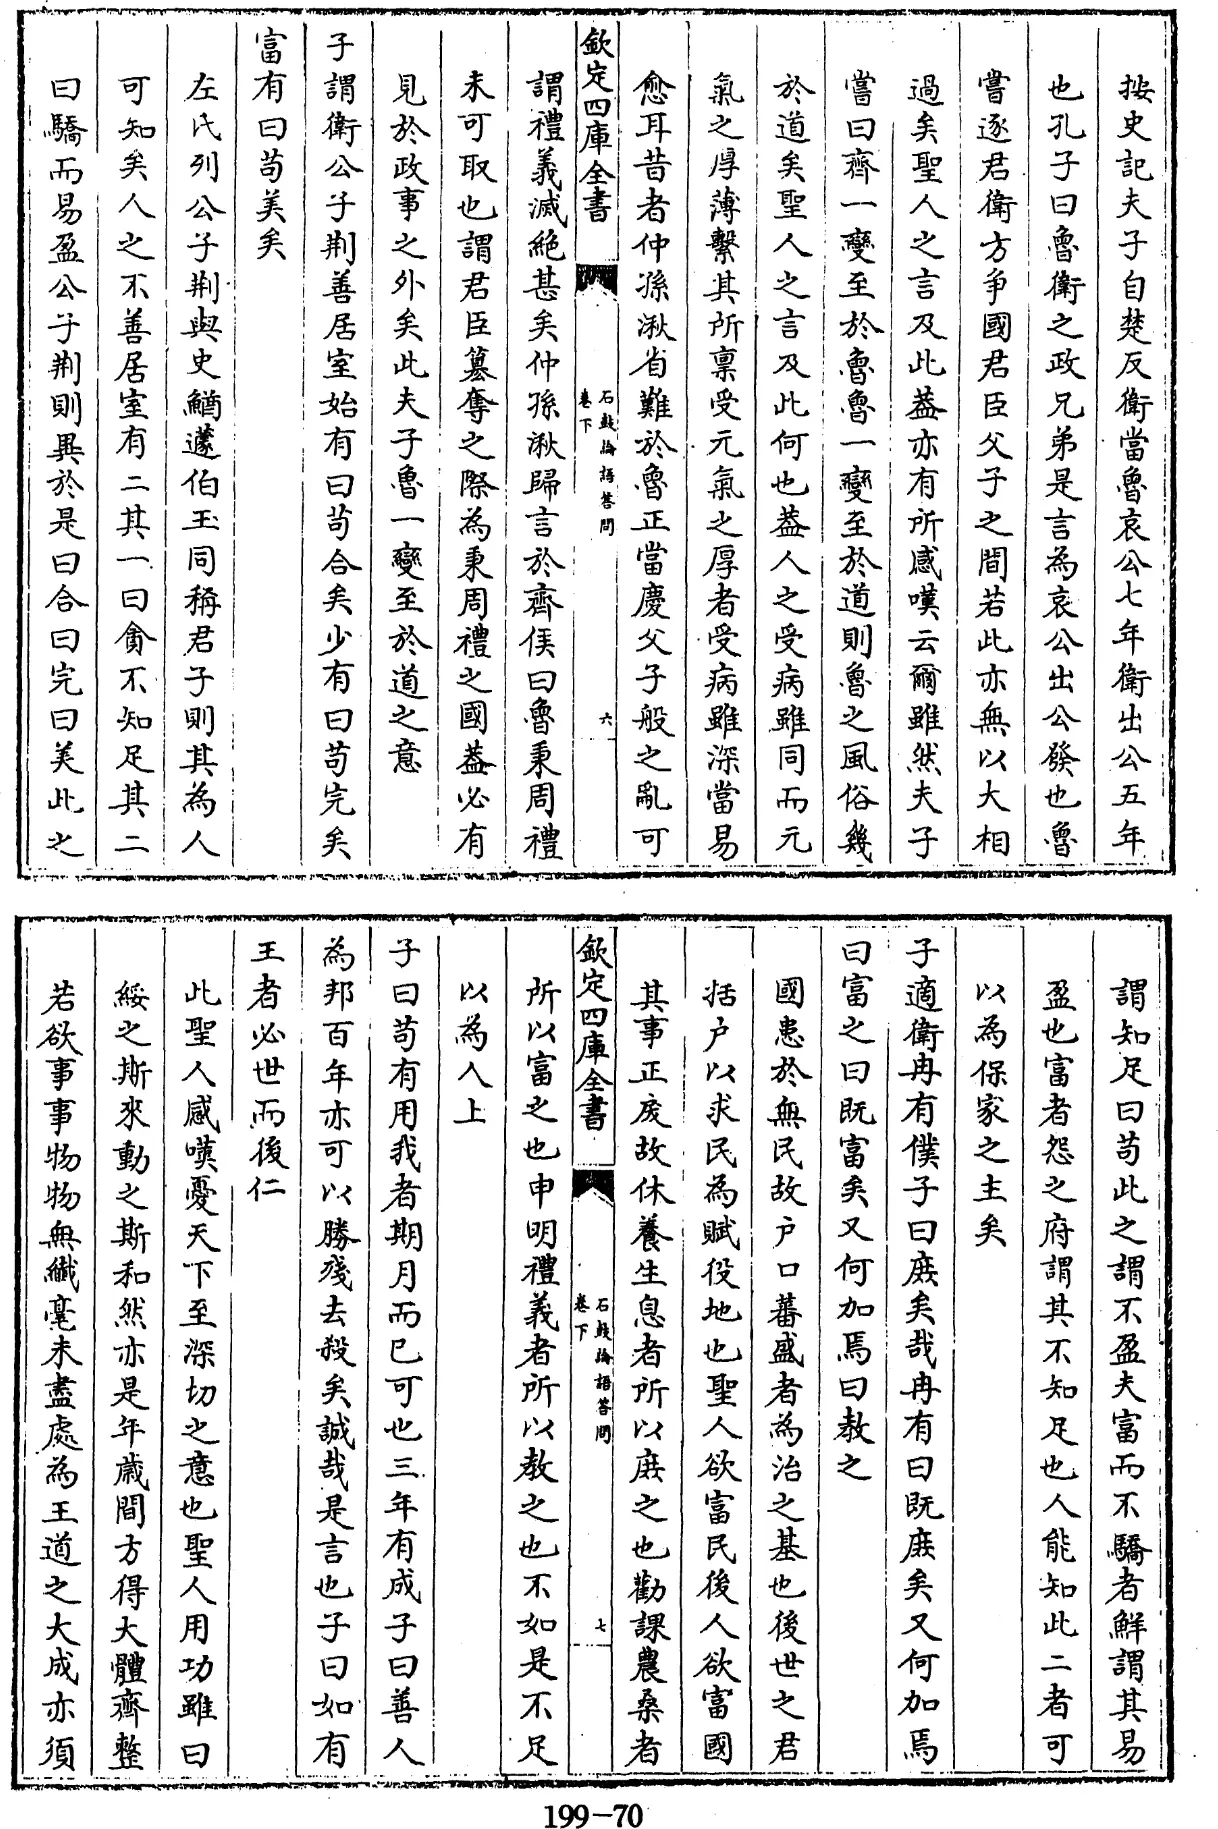 按史記夫子自楚反衛當魯哀公七年衛出公五年
也孔子曰魯衛之政兄弟是言為哀公出公發也魯
嘗逐君衛方爭國君臣父子之間若此亦無以大相
過矣聖人之言及此葢亦有所感嘆云爾雖然夫子
嘗曰齊一變至於魯魯一變至於道則魯之風俗幾
於道矣聖人之言及此何也葢人之受病雖同而元
氣之厚薄繫其所禀受元氣之厚者受病雖深當易
愈耳昔者仲孫湫省難於魯正當慶父子般之亂可
欽定四庫全書
石鼓論語答問
卷下
六
謂禮義滅絶甚矣仲孫湫歸言於齊侯曰魯秉周禮
未可取也謂君臣簒奪之際為秉周禮之國葢必有
見於政事之外矣此夫子魯一變至於道之意
子謂衛公子荆善居室始有曰苟合矣少有曰苟完矣
富有曰苟美矣
左氏列公子荆與史鰌蘧伯玉同稱君子則其為人
可知矣人之不善居室有二其一曰貪不知足其二
曰驕而易盈公子荆則異於是曰合曰完曰美此之
謂知足曰苟此之謂不盈夫富而不驕者鮮謂其易
盈也富者怨之府謂其不知足也人能知此二者可
以為保家之主矣
子適衛冉有僕子曰庶矣哉冉有曰既庶矣又何加焉
曰富之曰既富矣又何加焉曰教之
國患於無民故户口蕃盛者為治之基也後世之君
括户以求民為賦役地也聖人欲富民後人欲富國
其事正戾故休養生息者所以庶之也勸課農桑者
欽定四庫全書
石鼓論語答問
卷下
七
所以富之也申明禮義者所以教之也不如是不足
以為人上
子曰苟有用我者期月而已可也三年有成子曰善人
為邦百年亦可以勝殘去殺矣誠哉是言也子曰如有
王者必世而後仁
此聖人感嘆憂天下至深切之意也聖人用功雖曰
綏之斯來動之斯和然亦是年歲間方得大體齊整
若欲事事物物無纎毫未盡處為王道之大成亦須
199-70